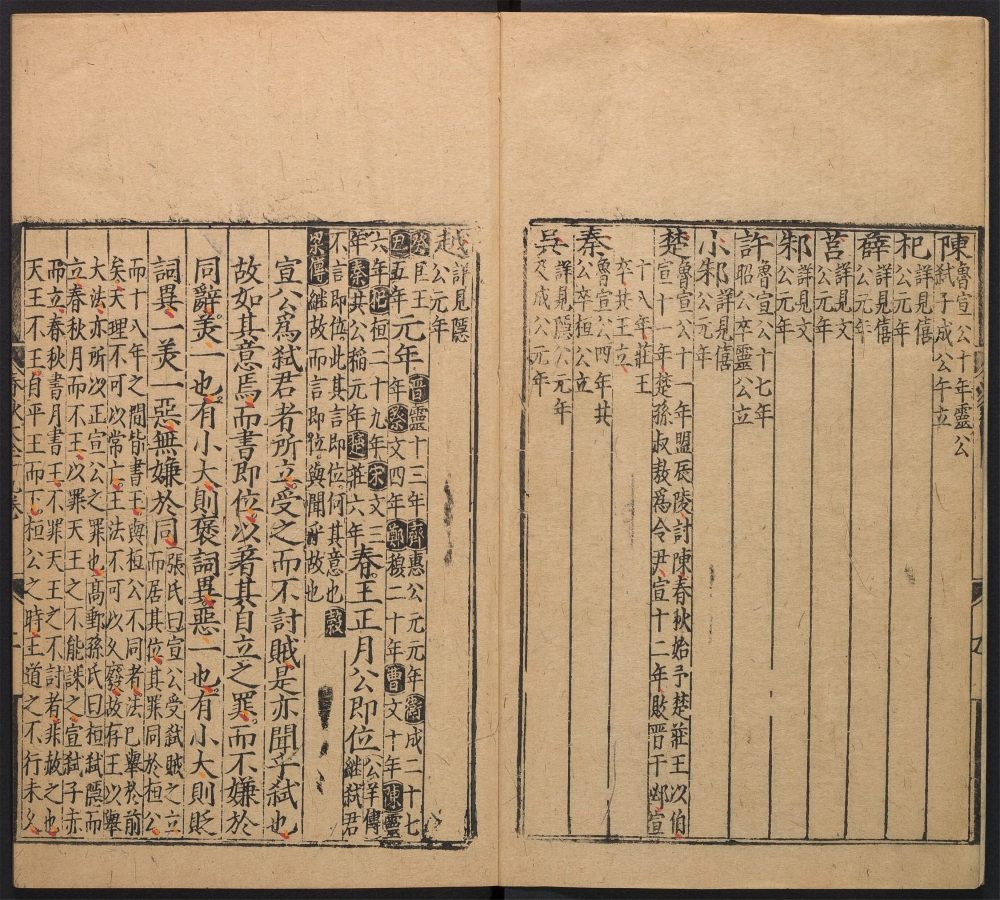 陳魯宣公十年靈公
弒子成公午立
杞詳見僖
公元年
薛詳見僖
公元年
莒詳見文
公元年
邾詳見文
公元年
許魯宣公十七年
昭公卒靈公立
小邾詳見僖
公元年
楚魯宣公十一年盟辰陵討陳春秋始予楚莊王以伯
宣十一年楚孫叔敖為令尹宣十二年敗晋于邲宣
十八年莊王
卒共王立
秦魯宣公四年共
公卒桓公立
吳詳見隱公元年
及成公元年
越詳見隱
公元年
癸丑匡王五年元年晋靈十三年齊惠公元元年衛成二十七
年蔡文四年鄭穆二十年曹文十年陳靈
六年杞桓二十九年宋文三
年秦共公稻元年楚莊六年春王正月公即位公羊傳
繼弒君
不言即位此其言即位何其意也穀
梁傳繼故而言即位與聞乎故也
宣公為弒君者所立受之而不討賊是亦聞乎弒也
故如其意焉而書即位以著其自立之罪而不嫌於
同辭美一也有小大則褒詞異惡一也有小大則貶
詞異一美一惡無嫌於同張氏曰宣公受弒賊之立
而居其位其罪同於桓公
而十八年之間皆書王與桓公不同者法已舉於前
矣天理不可以常亡王法不可以久廢故存王以舉
大法亦所以正宣公之罪也高郵孫氏曰桓弒隱而
立春秋月而不王以罪天王之不能誅之宣弒子赤
而立春秋書月書王不罪天王之不討者非赦之也
天王不王自平王而下桓公之時王道之不行未久